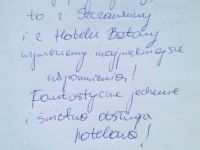 to z Szczawnicy
i z Hotelu Batory
wywozimy najpiękniejsze
wspomnienia!
Fantastyczne jedzenie
i świetna obsługa
hotelowa!